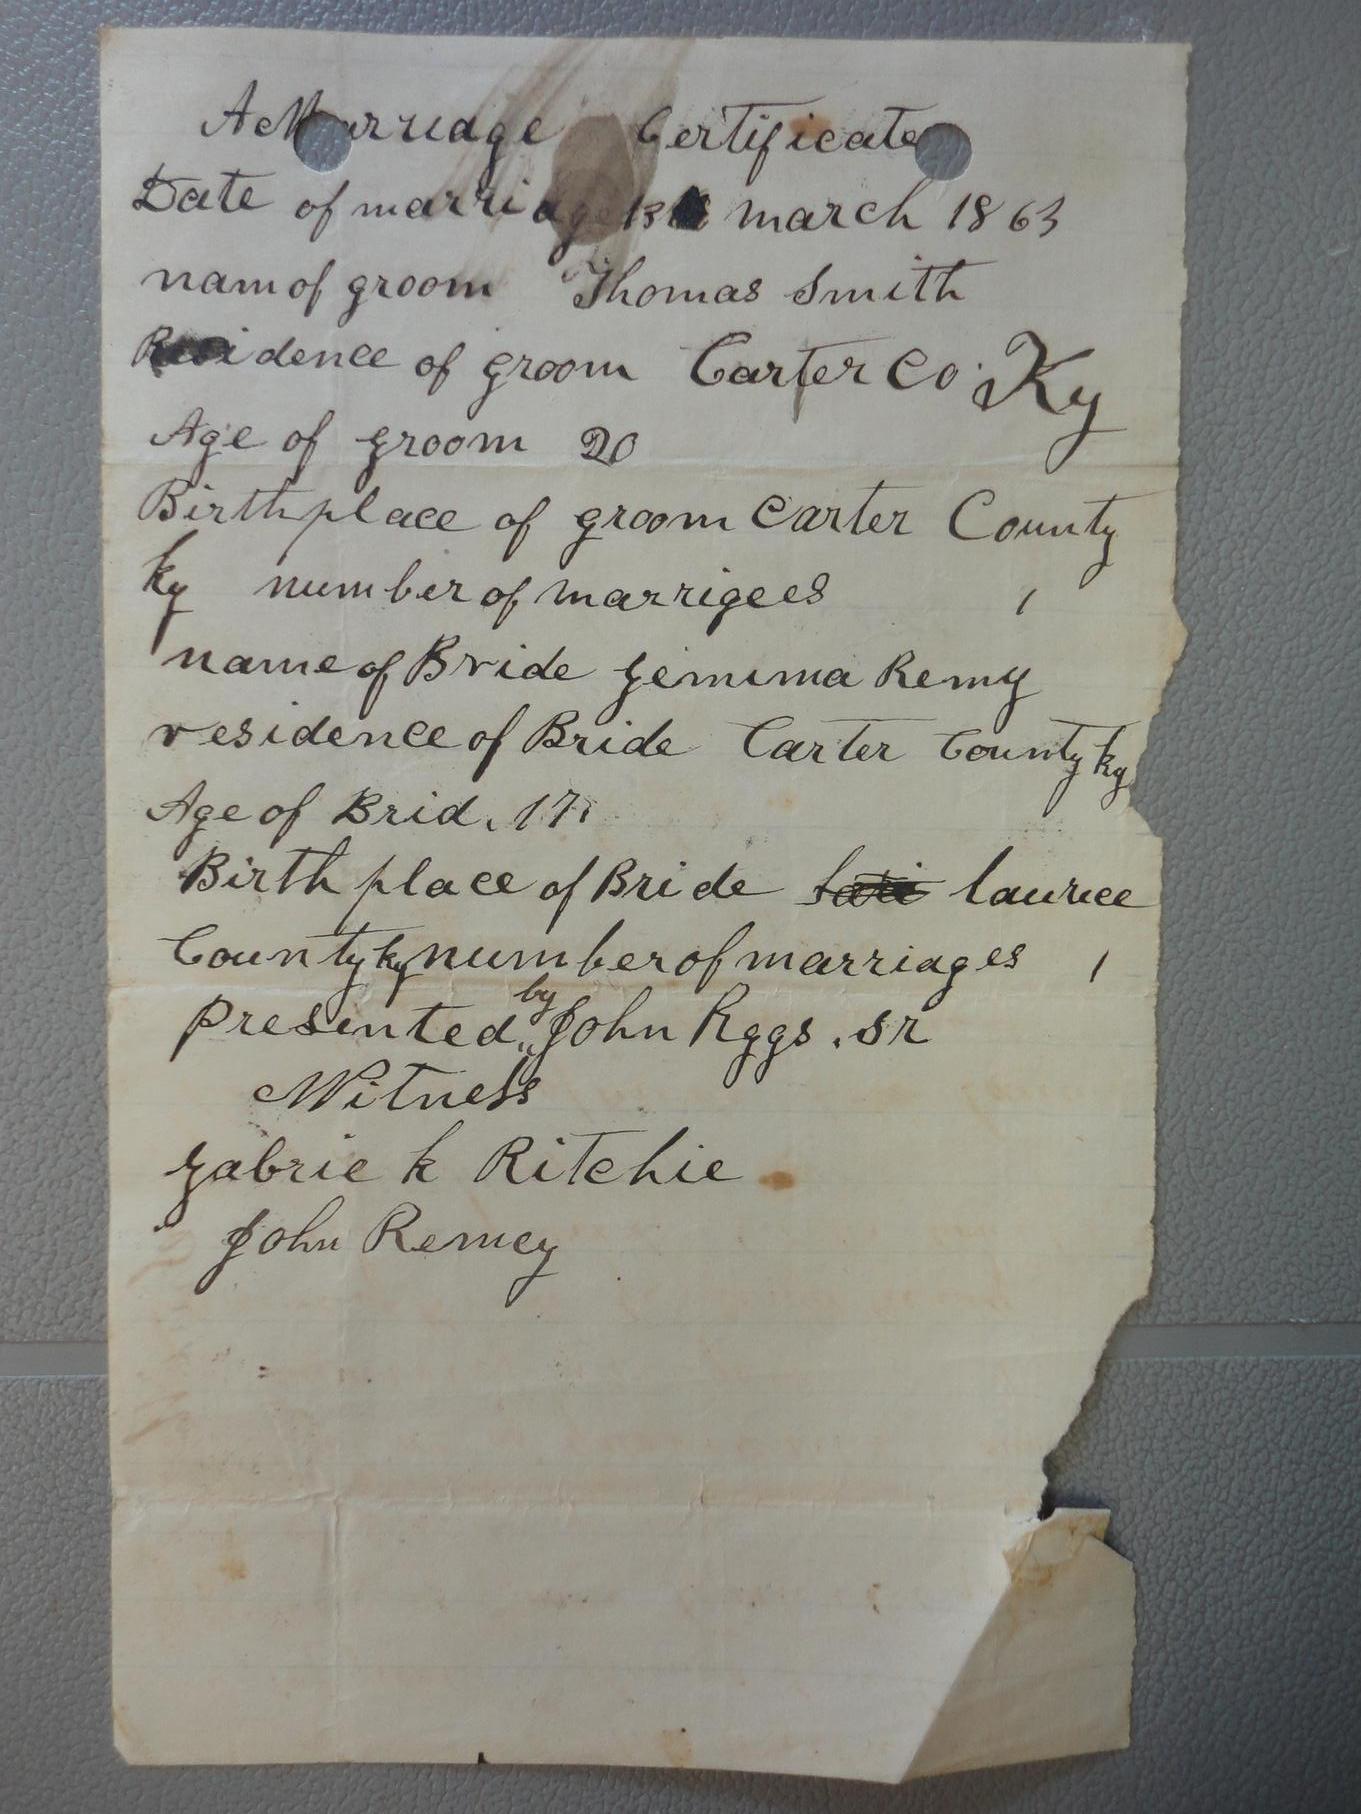 A Marriadge Certificate
Date of marridge 13 march 1863
nam of groom Thomas Smith
Residence of groom Carter Co. Ky
Age of groom 20
Birth place of groom Carter County
ky number of marrigees 1
name of Bride Jemima Remy
residence of Bride Carter County ky
Age of Brid. 17
Birth place of Bride laurece
County ky number of marriages 1
Presented by John Rggs. sr
Witness
Gabrie k Ritchie
John Remey